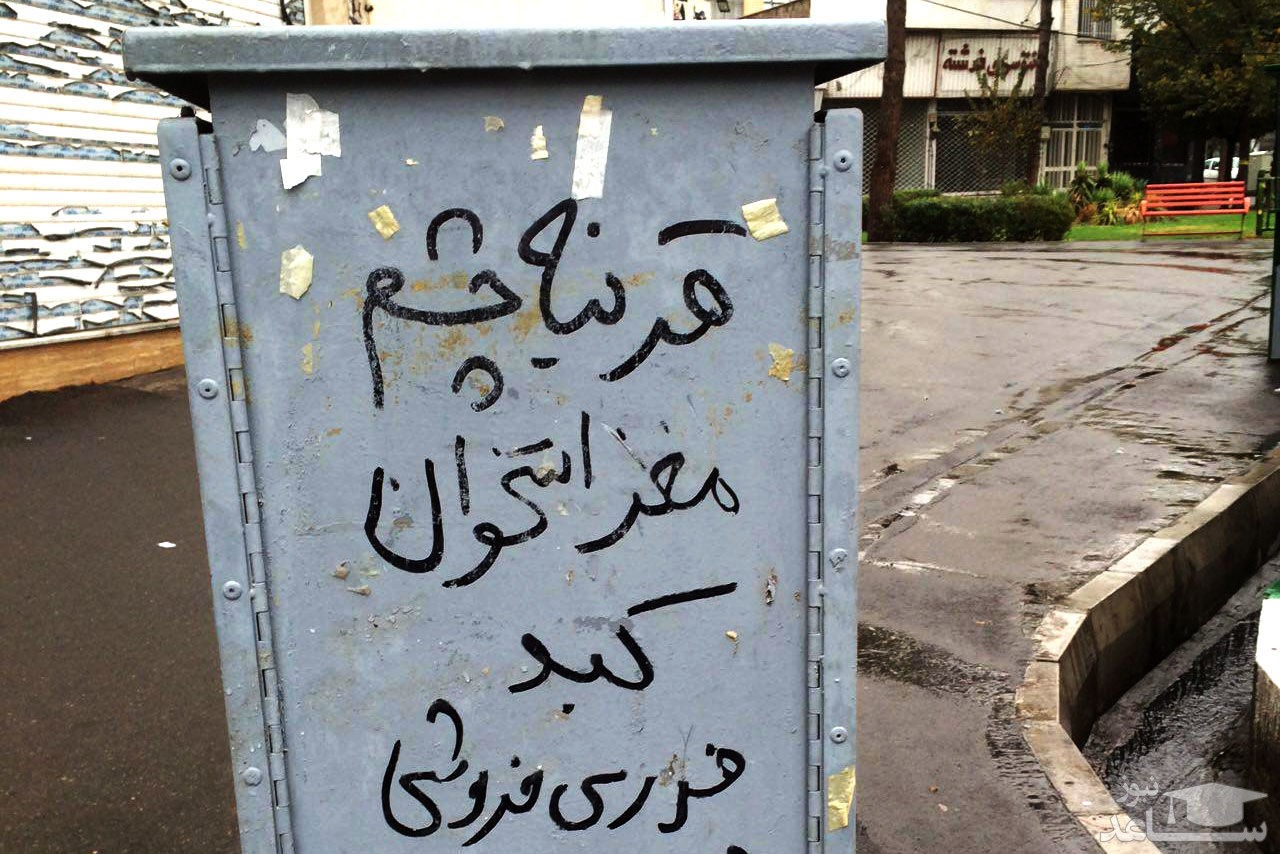 فرشته
قرنیه چشم
مغز استخوان
کبد
فوری فروشی
ساعد نیوز